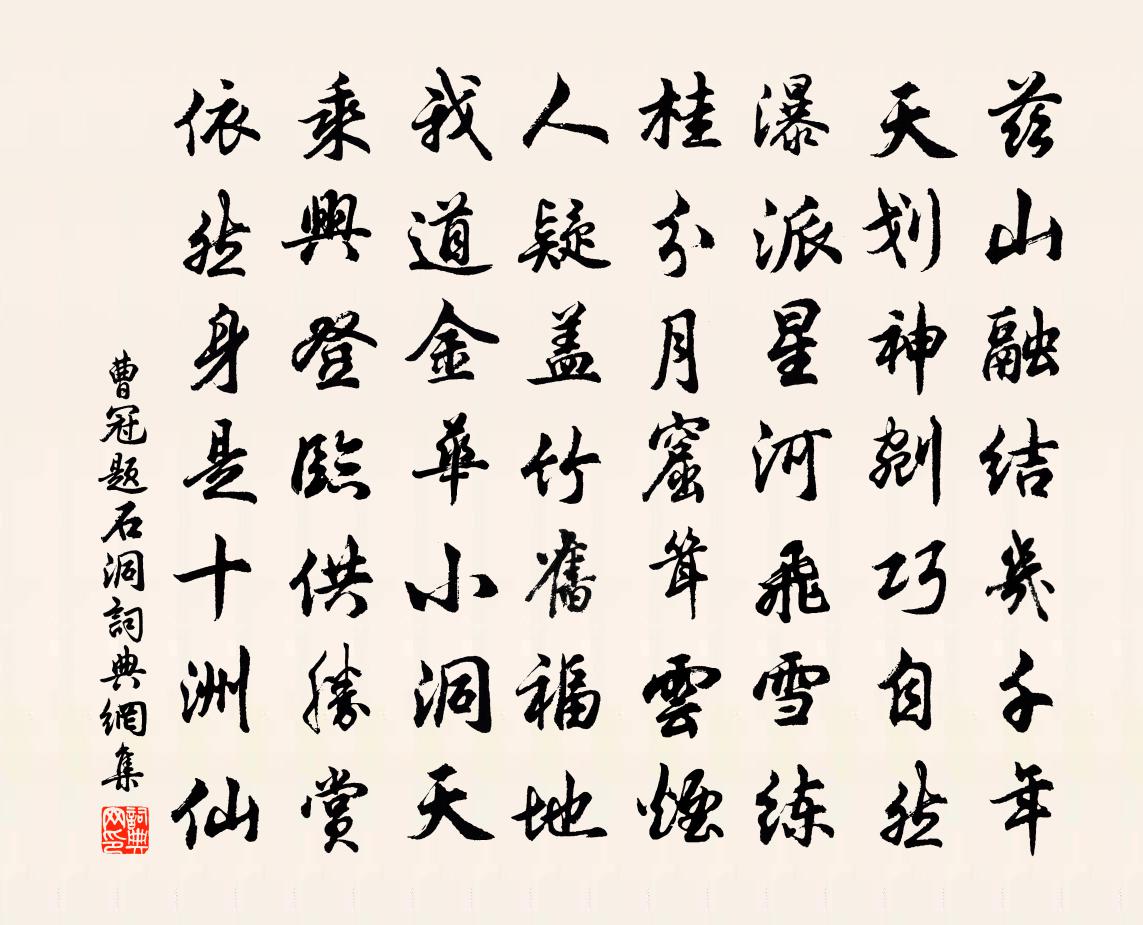 兹山融结几千年
天划神剜巧自然
瀑派星河飛雪练
桂分月窟耸雲煙
人疑盖竹舊福地
我道金華小洞天
乘興登臨供勝赏
依然身是十洲仙
曹冠题石洞詞典網集
詞典网印